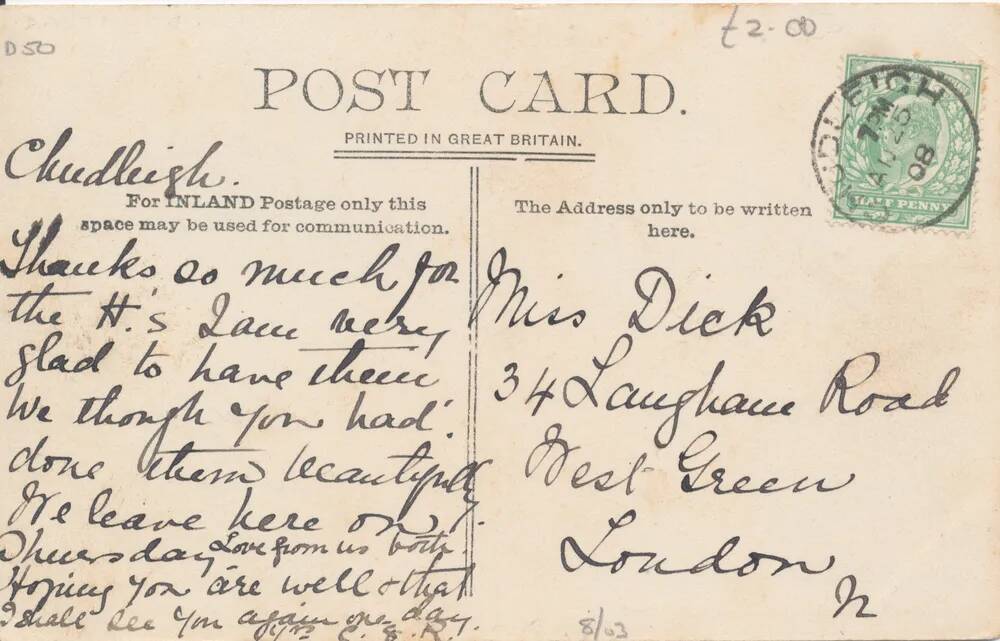 £2-00
D50
POST CARD.
PRINTED IN GREAT BRITAIN.
CHUDLEIGH
7 PM
AU 25
08
HALF PENNY
Chudleigh.
For INLAND Postage only this
space may be used for communication.
Thanks so much for
the H.'s I am very
glad to have them
We though you had
done them beautifully
We leave here on
Thursday Love from us both.
Hoping you are well & that
I shall see you again one day.
C. & R.
The Address only to be written
here.
Miss Dick
34 Langham Road
West Green
London
N
8/03